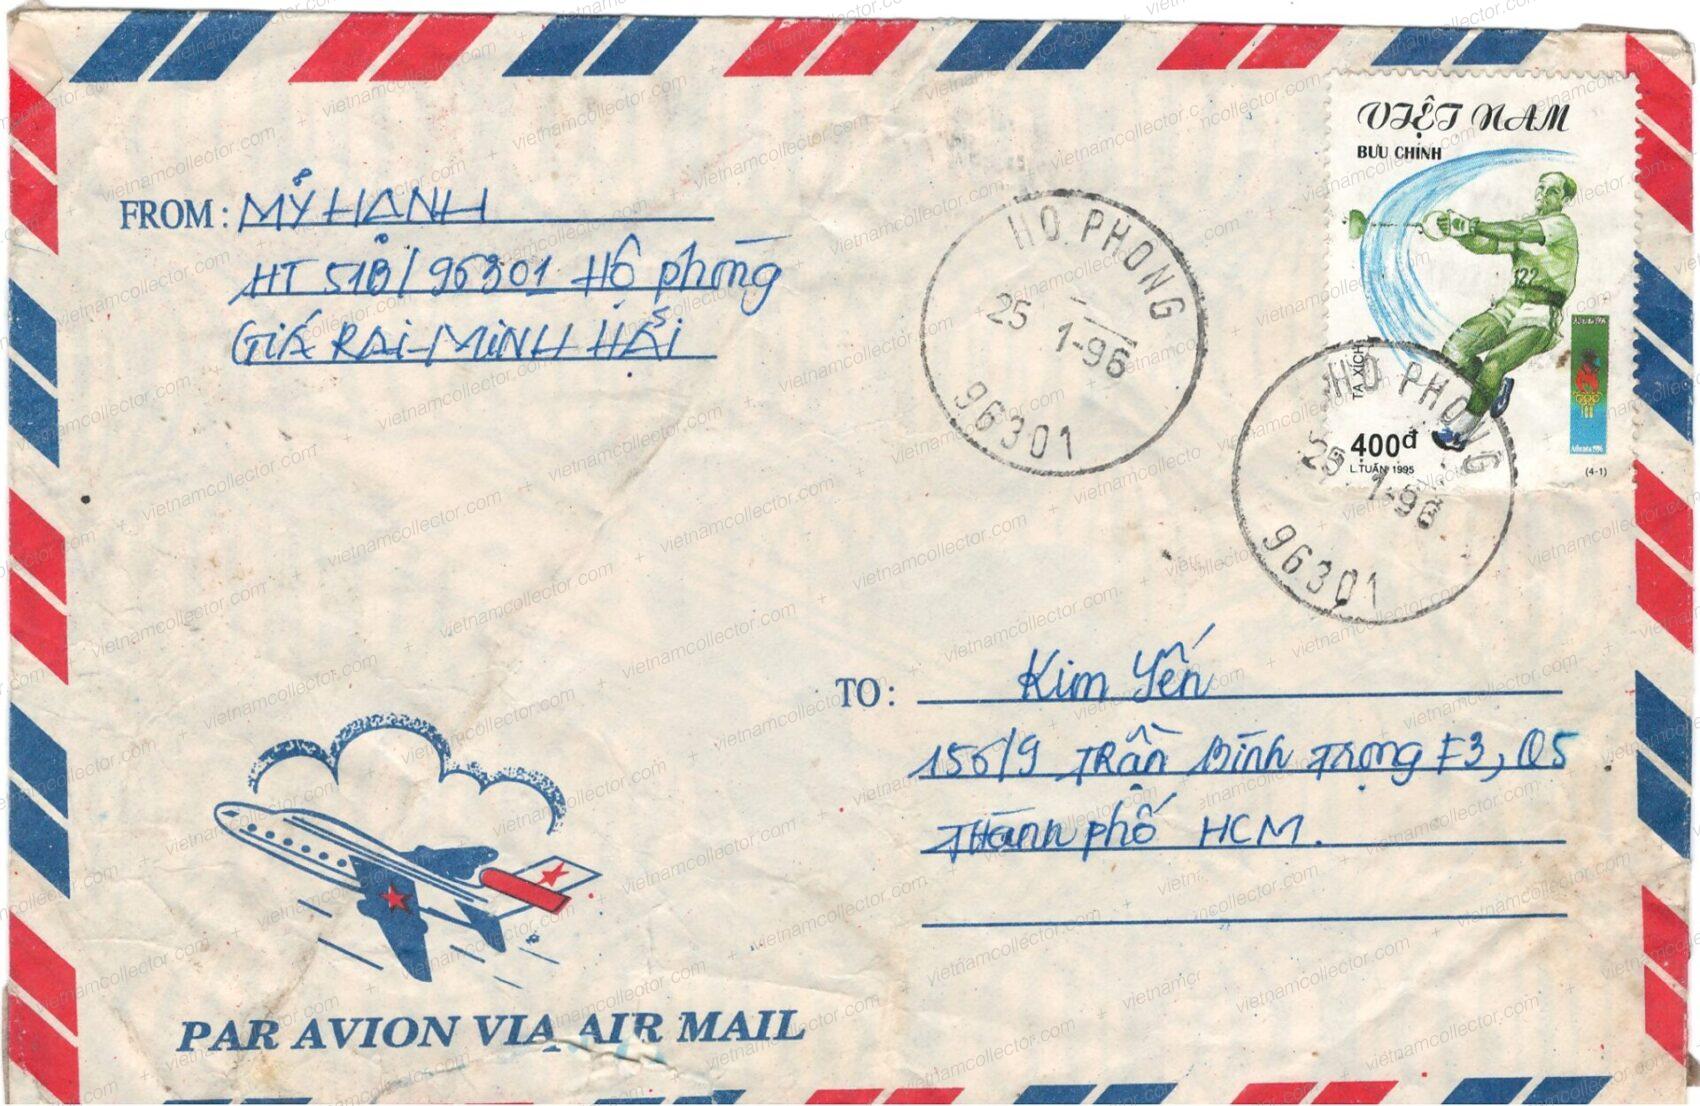 VIỆT NAM
BƯU CHÍNH
FROM: MỶ HẠNH
HT 51B/96301 Hộ phòng
GIÁ RAI-MINH HẢI
HO PHONG
25 1-96
96301
122
Atlanta 1996
TẠ XÍCH
400đ
L.TUẤN 1995
(4-1)
Atlanta 1996
HO PHONG
25 1-96
96301
TO: Kim Yến
156/9 Trần Bình Trọng F3, Q5
Thành phố HCM.
PAR AVION VIA AIR MAIL
vietnamcollector.com